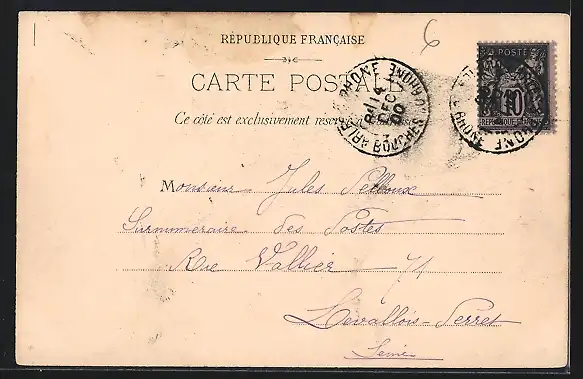 RÉPUBLIQUE FRANÇAISE
6
CARTE POSTALE
POSTES
10
REPUBLIQUE FRANÇAISE
ARLES
BOUCHES DU RHONE
11
DEC
00
RHONE
Ce côté est exclusivement réservé à
Monsieur Jules Pelloux
Surnumeraire des Postes
Rue Vallier — 71
Levallois-Perret
Seine